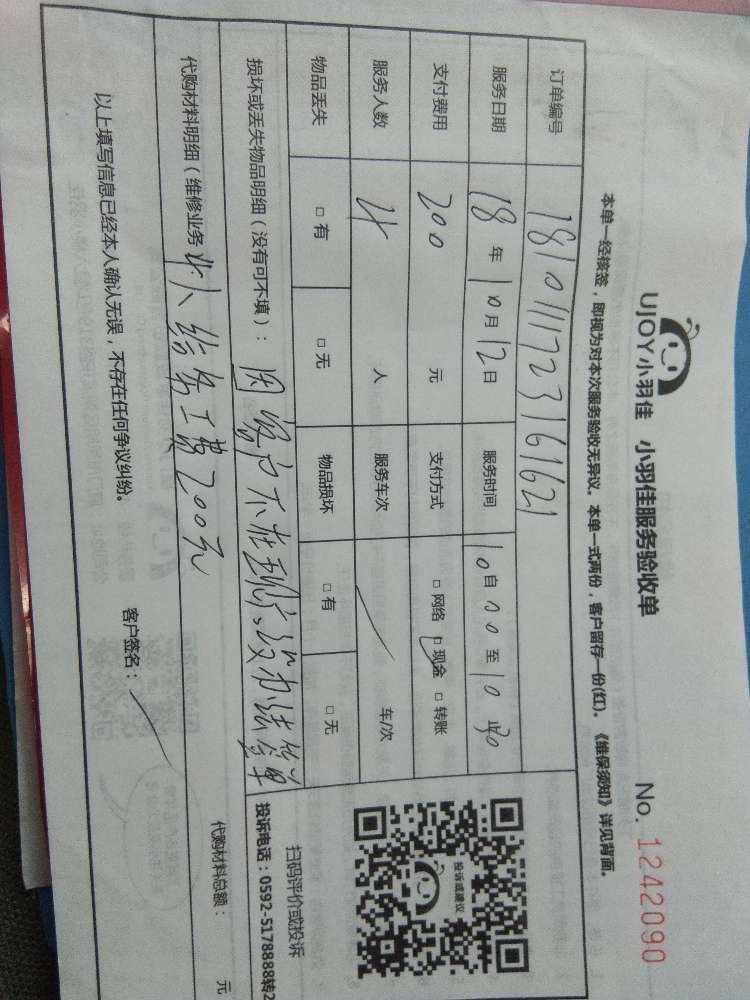 UJOY小羽佳 小羽佳服务验收单 No. 1242090
本单一经核签，即视为对本次服务验收无异议。本单一式两份，客户留存一份(红)。《维保须知》详见背面。
订单编号 1810111723161621
服务日期 18年10月12日 服务时间 10自00至10 30
支付费用 200 元 支付方式 □网络 □现金 □转账
服务人数 4 人 服务车次 车/次
物品丢失 □有 □无 物品损坏 □有 □无
损坏或丢失物品明细（没有可不填）：因客户不在现场,没办法签单
代购材料明细（维修业务 4人结务工费200元
代购材料总额： 元
以上填写信息已经本人确认无误，不存在任何争议纠纷。 客户签名：
投诉或建议
扫码评价或投诉
投诉电话：0592-5178888转2